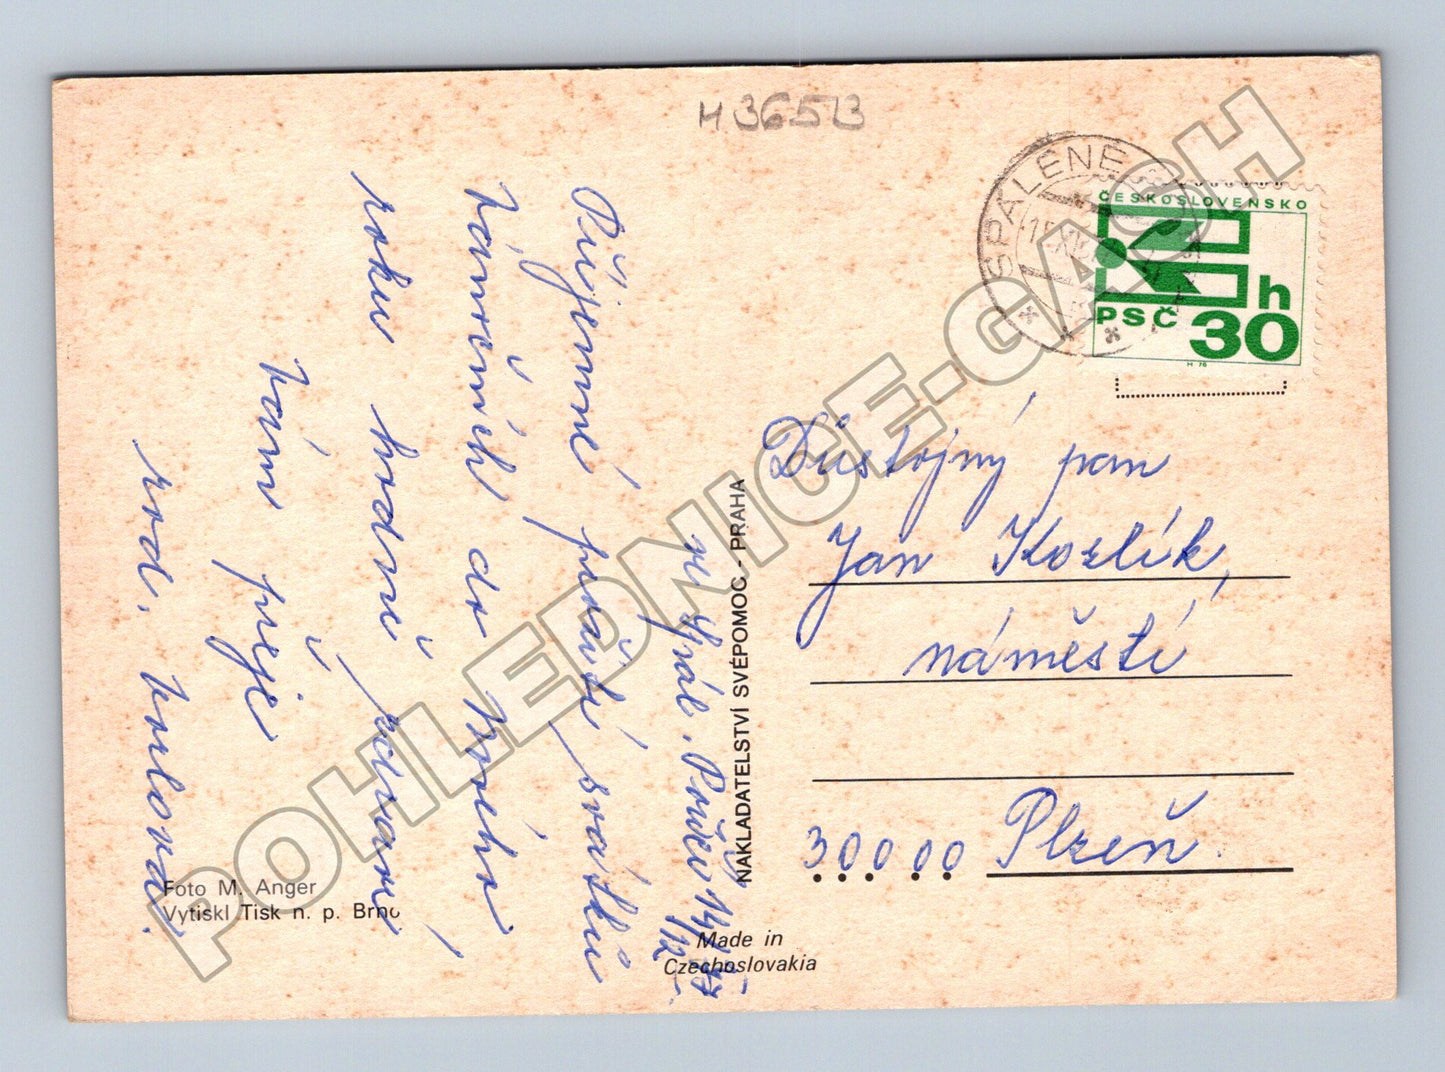 H 36513
SPÁLENÉ
15.XII
ČESKOSLOVENSKO
h
PSČ 30
H 76
ve Spál. Poříčí 14/12
Příjemné prožití svátků
vánočních do Nového
roku hodně zdraví
Vám přeje
rod.
Důstojný pan
Jan Kozlík,
náměstí
300 00 Plzeň.
NAKLADATELSTVÍ SVÉPOMOC - PRAHA
Foto M. Anger
Vytiskl Tisk n. p. Brno
Made in
Czechoslovakia
POHLEDNICE-GASH